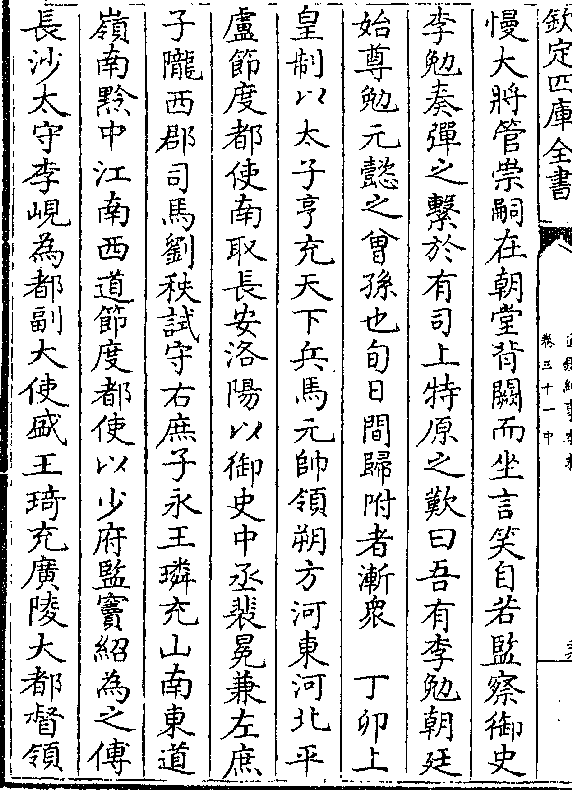 欽定四庫全書
卷三十一中
慢大將管崇嗣在朝堂背闕而坐言笑自若監察御史
李勉奏彈之繫於有司上特原之歎曰吾有李勉朝廷
始尊勉元懿之曾孫也旬日間歸附者漸衆　丁卯上
皇制以太子亨充天下兵馬元帥領朔方河東河北平
盧節度都使南取長安洛陽以御史中丞裴冕兼左庶
子隴西郡司馬劉秩試守右庶子永王璘充山南東道
嶺南黔中江南西道節度都使以少府監竇紹為之傅
長沙太守李峴為都副大使盛王琦充廣陵大都督領